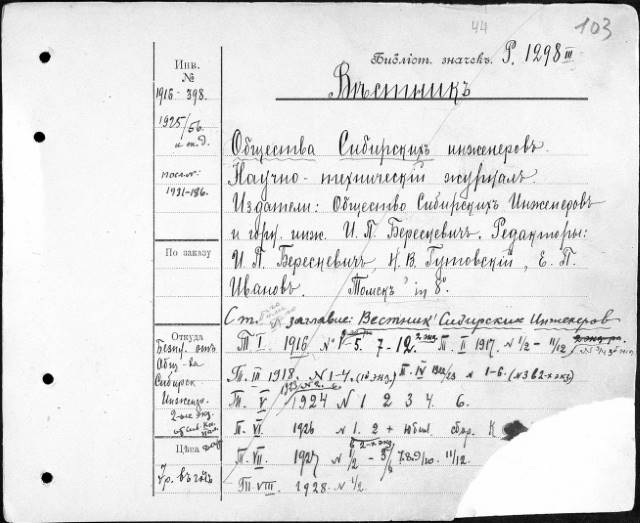 44
103
Инв. №
1916-398.
1925/56.
и т.д.
послѣ:
1931-186.
По заказу
Откуда
Безпл. отъ
Общ-ва
Сибирск
Инженер.
2-ые экз.
Цѣна
7р. въ годъ
Библіот. значекъ. Р. 1298 III
Вѣстникъ
Общества Сибирскихъ инженеровъ.
Научно-техническій журналъ.
Издатели: Общество Сибирскихъ Инженеровъ
и горн. инж. И. П. Бересневичъ. Редакторы:
И. П. Бересневичъ, Н. В. Гутовскій, Е. П.
Ивановъ. Томскъ in 8°.
С т. заглавие: Вестник Сибирских Инженеров
Т I. 1916 №1-5. 7-12 2 экз. Т. II 1917. №1/2 - 11/12
Т. III 1918. №1-4. Т. IV 1922/23 № 1-6. (№3 в 2-х экз)
1923 №2
Т. V 1924 № 1 2 3 4. 6.
Т. VI. 1926 № 1. 2 + юбил. сбор.
в 2-х экз
Т. VII. 1927 № 1/2 - 5/6 7.8.9/10. 11/12.
Т. VIII. 1928. № 1/2